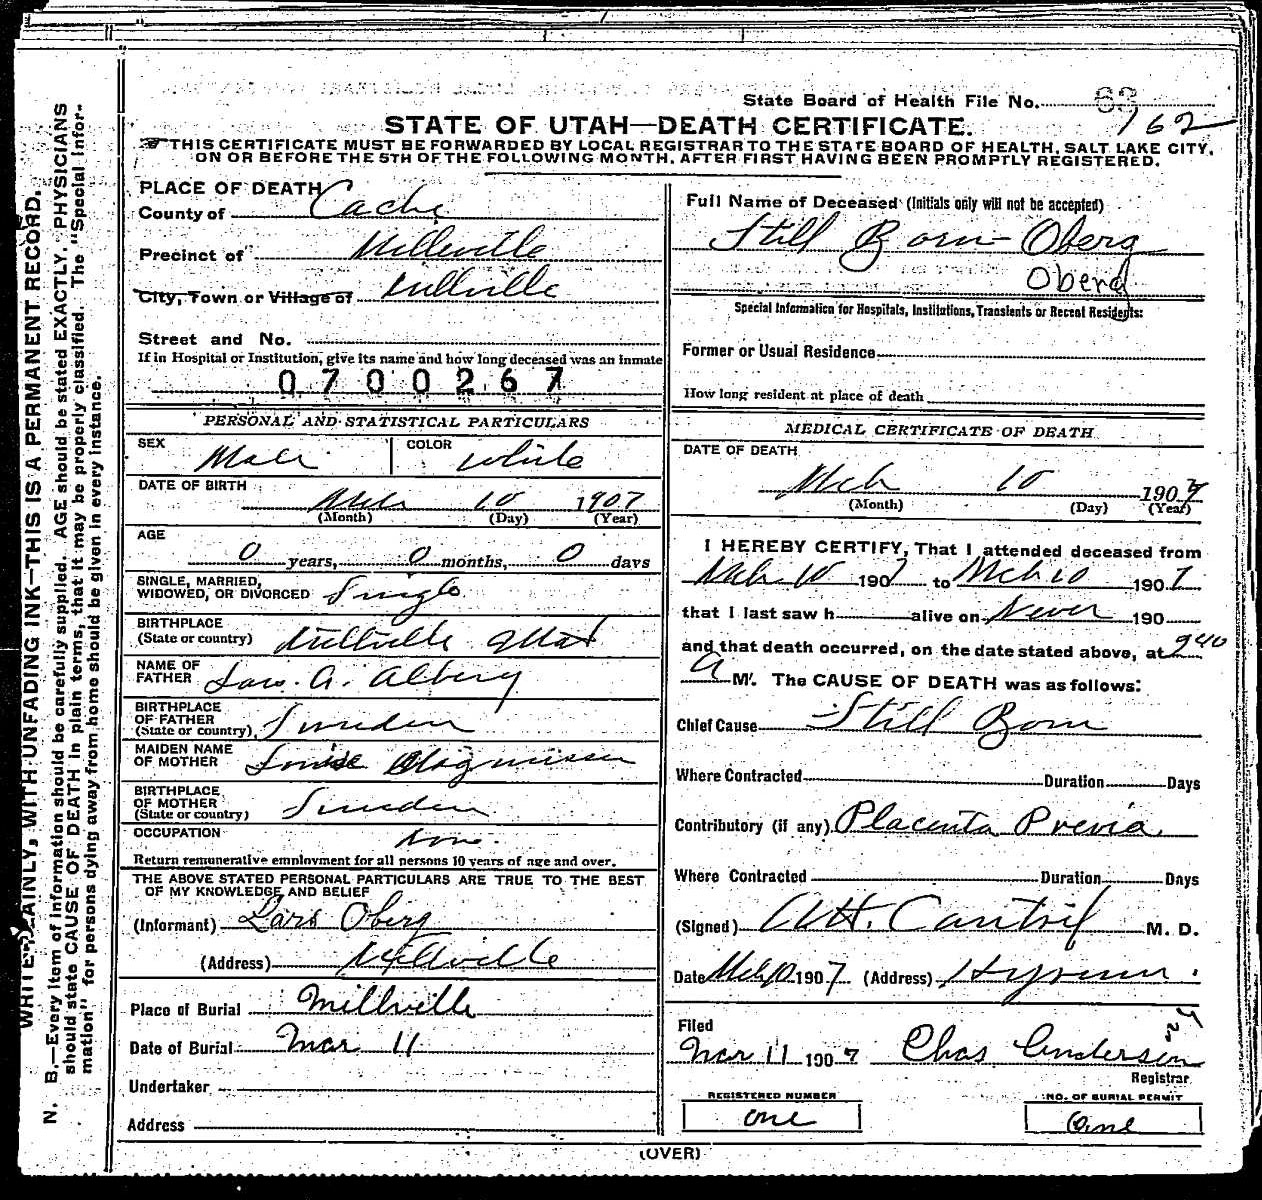 State Board of Health File No. 63
162
STATE OF UTAH—DEATH CERTIFICATE.
THIS CERTIFICATE MUST BE FORWARDED BY LOCAL REGISTRAR TO THE STATE BOARD OF HEALTH, SALT LAKE CITY,
ON OR BEFORE THE 5TH OF THE FOLLOWING MONTH, AFTER FIRST HAVING BEEN PROMPTLY REGISTERED.
PLACE OF DEATH
County of Cache
Precinct of Millville
City, Town or Village of Millville
Street and No.
If in Hospital or Institution, give its name and how long deceased was an inmate
0700267
PERSONAL AND STATISTICAL PARTICULARS
SEX Male COLOR White
DATE OF BIRTH
Mch 10 1907
(Month) (Day) (Year)
AGE
0 years, 0 months, 0 days
SINGLE, MARRIED,
WIDOWED, OR DIVORCED Single
BIRTHPLACE
(State or country) Millville Utah
NAME OF
FATHER Lars. A. Alberg
BIRTHPLACE
OF FATHER
(State or country) Sweden
MAIDEN NAME
OF MOTHER Louise Magnussen
BIRTHPLACE
OF MOTHER
(State or country) Sweden
OCCUPATION None.
Return remunerative employment for all persons 10 years of age and over.
THE ABOVE STATED PERSONAL PARTICULARS ARE TRUE TO THE BEST
OF MY KNOWLEDGE AND BELIEF
(Informant) Lars Oberg
(Address) Millville
Place of Burial Millville
Date of Burial Mar 11
Undertaker
Address
Full Name of Deceased (Initials only will not be accepted)
Still Born Oberg
Oberg
Special Information for Hospitals, Institutions, Transients or Recent Residents:
Former or Usual Residence
How long resident at place of death
MEDICAL CERTIFICATE OF DEATH
DATE OF DEATH
Mch 10 1907
(Month) (Day) (Year)
I HEREBY CERTIFY, That I attended deceased from
Mch 10 1907 to Mch 10 1907
that I last saw h alive on Never 190
and that death occurred, on the date stated above, at 940
A M. The CAUSE OF DEATH was as follows:
Chief Cause Still Born
Where Contracted Duration Days
Contributory (if any) Placenta Previa
Where Contracted Duration Days
(Signed) Cantril M. D.
Date Mch 10 1907 (Address) Hyrum.
Filed
Mar 11 1907 Chas Anderson
Registrar
REGISTERED NUMBER
one
NO. OF BURIAL PERMIT
one
(OVER)
WRITE PLAINLY, WITH UNFADING INK—THIS IS A PERMANENT RECORD.
N. B.—Every item of information should be carefully supplied. AGE should be stated EXACTLY. PHYSICIANS
should state CAUSE OF DEATH in plain terms, that it may be properly classified. The "Special Infor-
mation" for persons dying away from home should be given in every instance.